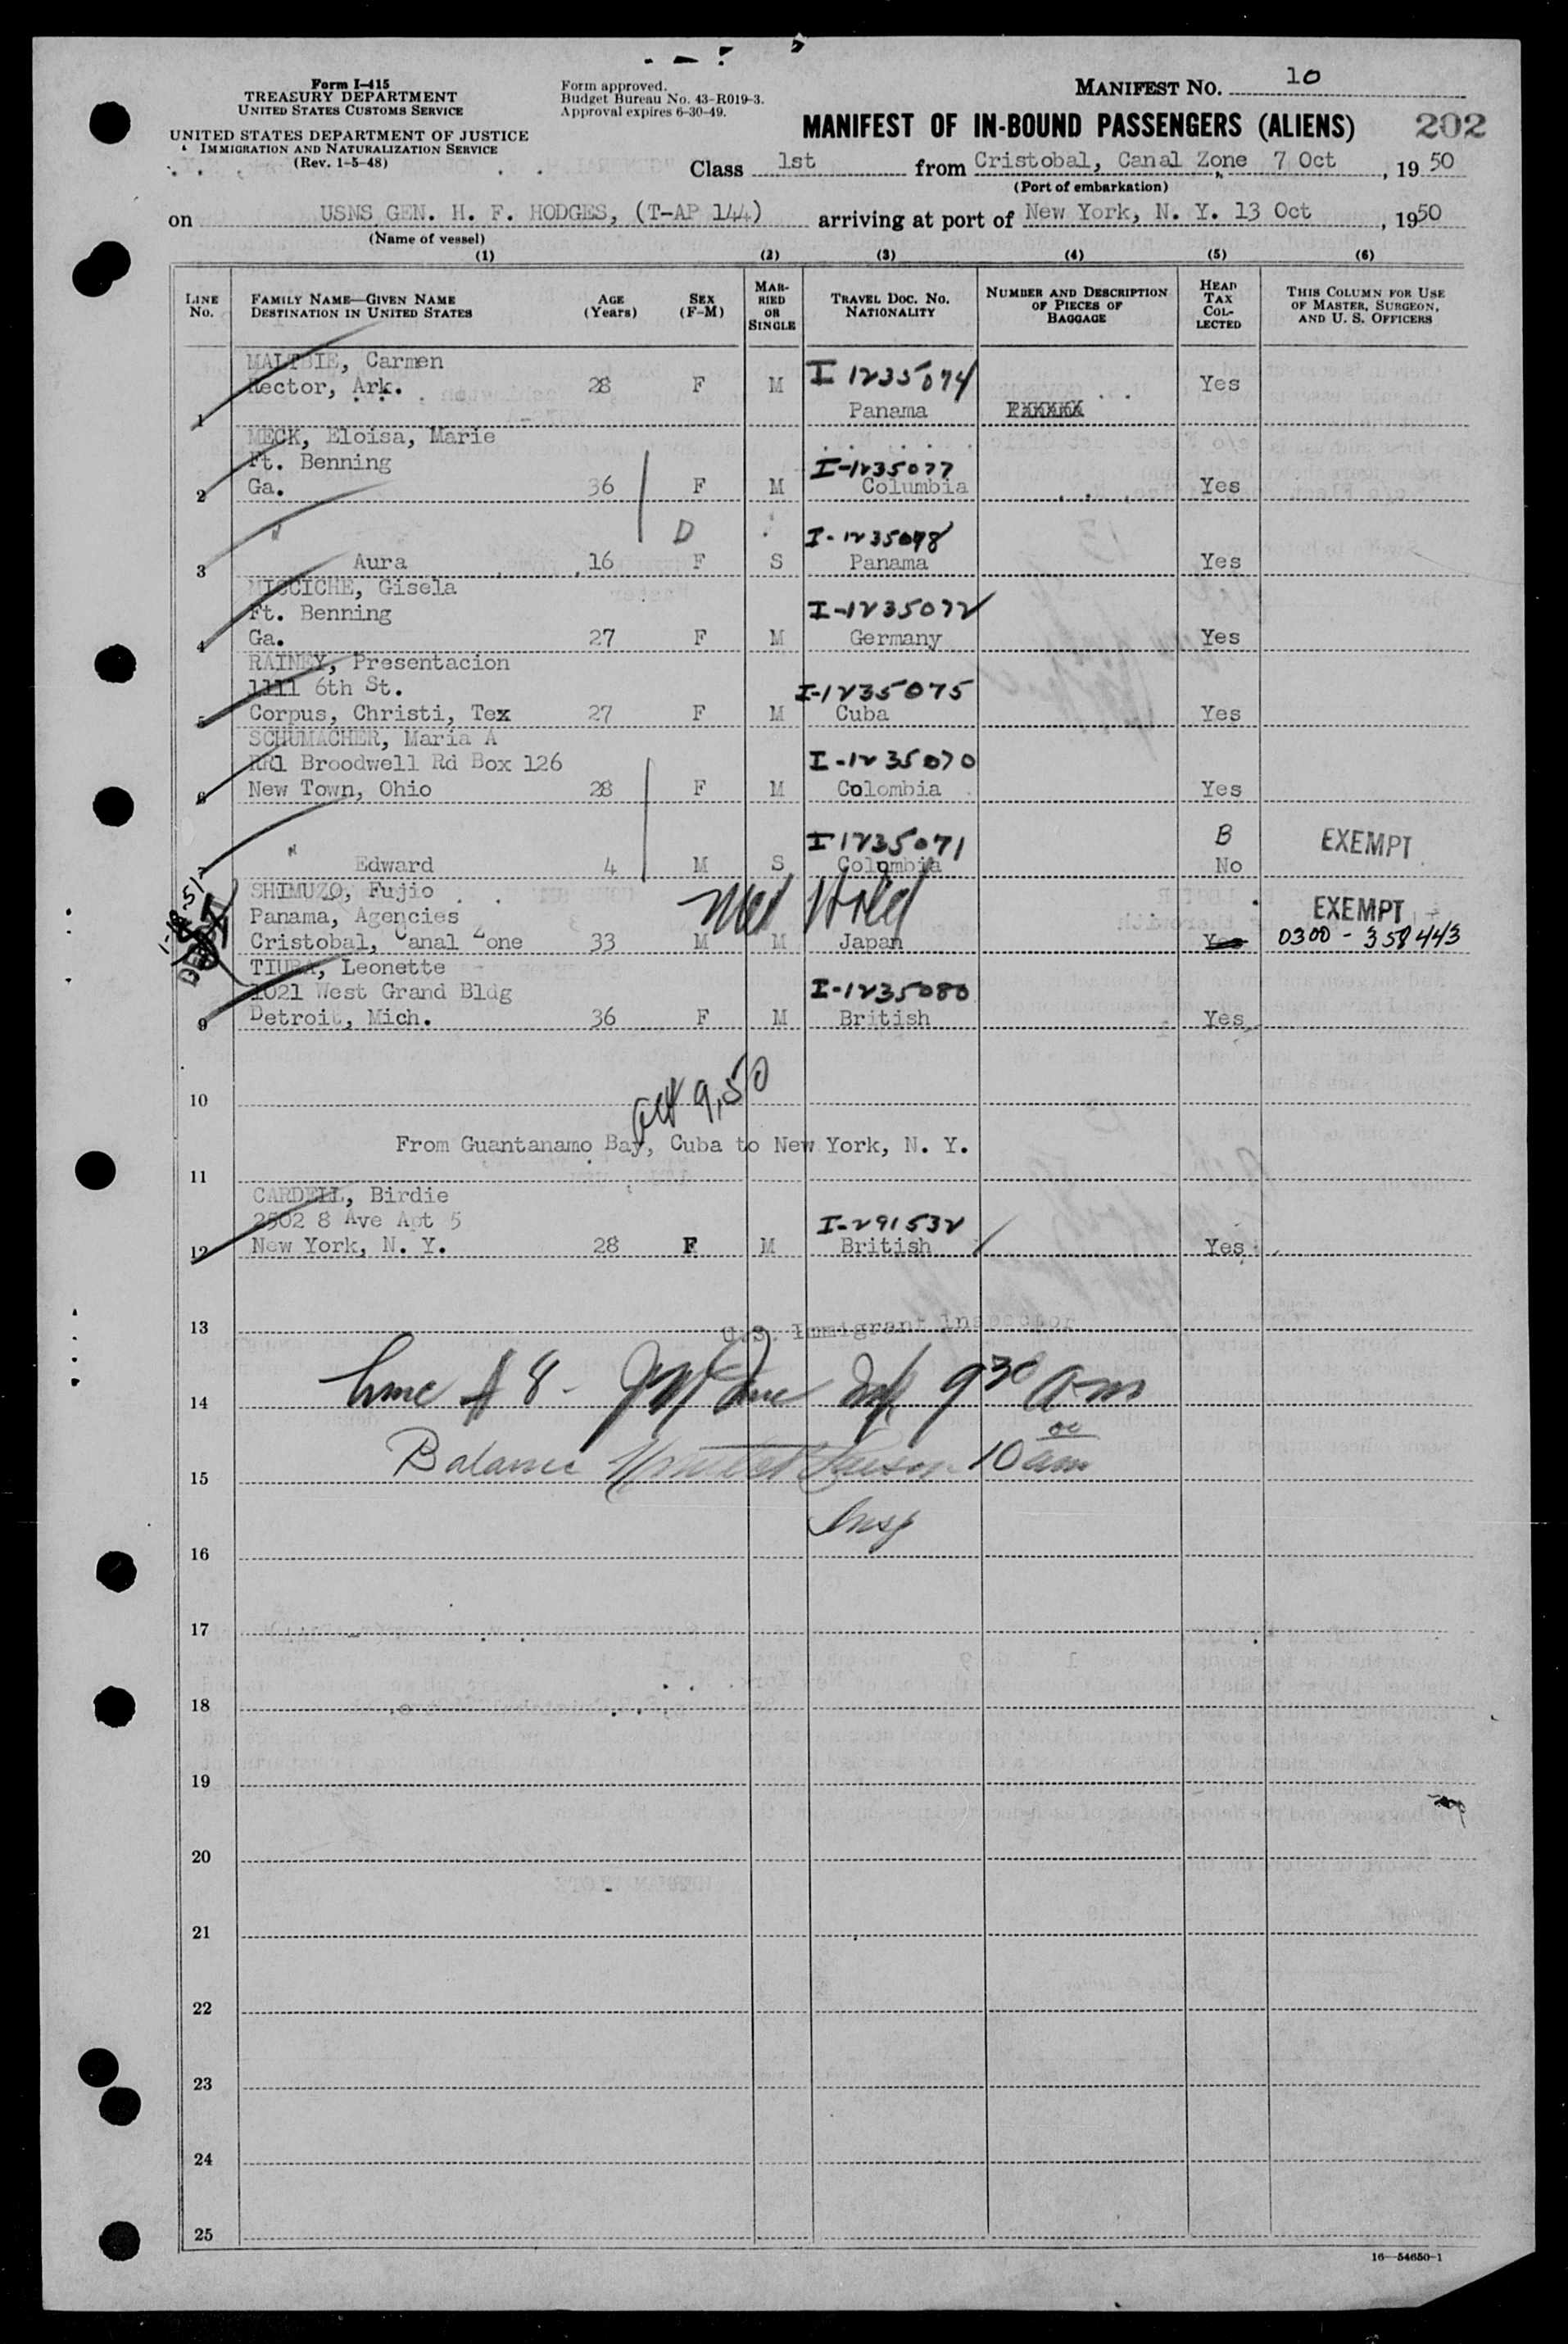 Form I-415
TREASURY DEPARTMENT
UNITED STATES CUSTOMS SERVICE
UNITED STATES DEPARTMENT OF JUSTICE
IMMIGRATION AND NATURALIZATION SERVICE
(Rev. 1-5-48)
Form approved.
Budget Bureau No. 43-R019-3.
Approval expires 6-30-49.
MANIFEST NO. 10
MANIFEST OF IN-BOUND PASSENGERS (ALIENS) 202
Class 1st from Cristobal, Canal Zone 7 Oct, 1950
(Port of embarkation)
on USNS GEN. H. F. HODGES, (T-AP 144) arriving at port of New York, N. Y. 13 Oct, 1950
(Name of vessel)
(1) (2) (3) (4) (5) (6)
LINE No. FAMILY NAME—GIVEN NAME DESTINATION IN UNITED STATES AGE (Years) SEX (F-M) MARRIED OR SINGLE TRAVEL DOC. NO. NATIONALITY NUMBER AND DESCRIPTION OF PIECES OF BAGGAGE HEAD TAX COLLECTED THIS COLUMN FOR USE OF MASTER, SURGEON, AND U. S. OFFICERS
MALTBIE, Carmen
Rector, Ark. 28 F M I 1235074 Yes
1 Panama
MECK, Eloisa, Marie
Ft. Benning I-1235077
2 Ga. 36 F M Columbia Yes
" D I-1235078
3 Aura 16 F S Panama Yes
MISCICHE, Gisela
Ft. Benning I-1235072
4 Ga. 27 F M Germany Yes
RAINEY, Presentacion
1111 6th St. I-1235075
5 Corpus, Christi, Tex 27 F M Cuba Yes
SCHUMACHER, Maria A
RR1 Broodwell Rd Box 126 I-1235070
6 New Town, Ohio 28 F M Colombia Yes
I 1235071 B EXEMPT
7 " Edward 4 M S Colombia No
SHIMUZO, Fujio
Panama, Agencies Hold EXEMPT
Cristobal, Canal Zone 33 M M Japan Yes 0300-358443
TIURA, Leonette
1021 West Grand Bldg I-1235080
9 Detroit, Mich. 36 F M British Yes
10
9,50
From Guantanamo Bay, Cuba to New York, N. Y.
11
CARDELL, Birdie
2502 8 Ave Apt 5 I-291532
12 New York, N. Y. 28 F M British Yes
13 U.S. Immigrant Inspector
14 Line # 8 - 9 30 am
15 Balance 10 00 am
Insp
16
17
18
19
20
21
22
23
24
25
16—54650-1